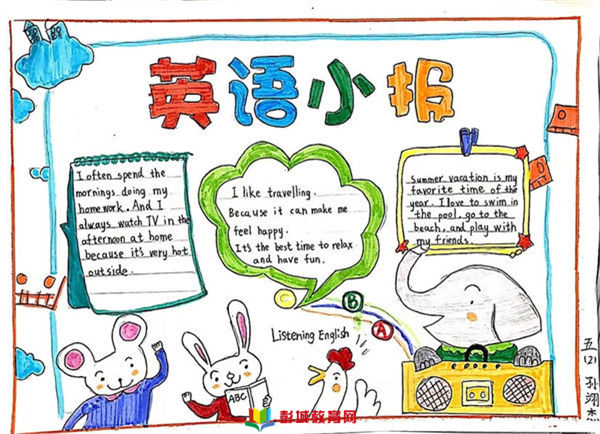 英语小报
I often spend the
mornings doing my
homework. And I
always watch TV in the
afternoon at home
because it's very hot
outside.
I like travelling.
Because it can make me
feel happy.
It's the best time to relax
and have fun.
Summer vacation is my
favorite time of the
year. I love to swim in
the pool, go to the
beach, and play with
my friends.
C
B
A
Listening English
ABC
五(2) 孙翊杰
彭城教育网